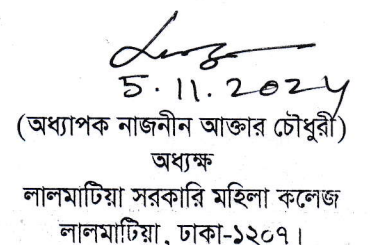 5.11.2024
(অধ্যাপক নাজনীন আক্তার চৌধুরী)
অধ্যক্ষ
লালমাটিয়া সরকারি মহিলা কলেজ
লালমাটিয়া, ঢাকা-১২০৭।